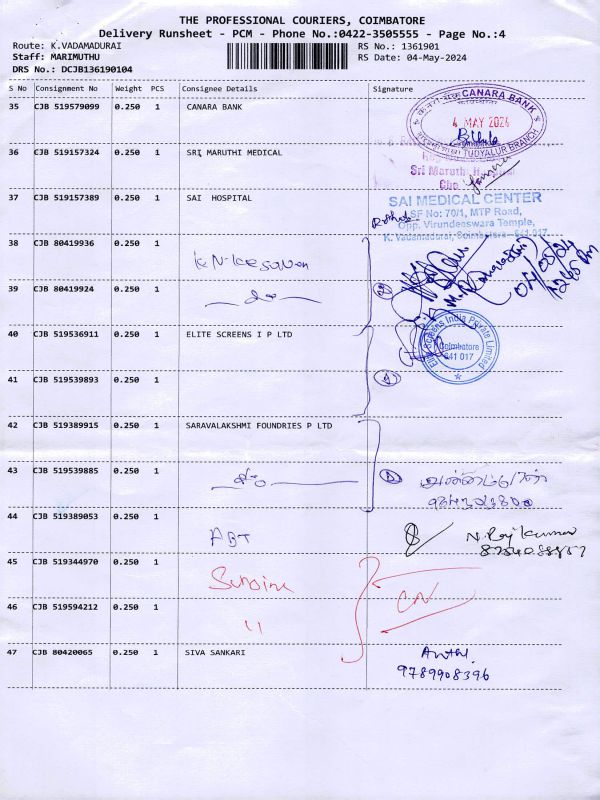 THE PROFESSIONAL COURIERS, COIMBATORE
Delivery Runsheet - PCM - Phone No.:0422-3505555 - Page No.:4
Route: K.VADAMADURAI
Staff: MARIMUTHU
DRS No.: DCJB136190104
RS No.: 1361901
RS Date: 04-May-2024
S No Consignment No Weight PCS Consignee Details Signature
35 CJB 519579099 0.250 1 CANARA BANK
CANARA BANK
4 MAY 2024
TUDYALUR BRANCH
36 CJB 519157324 0.250 1 SRI MARUTHI MEDICAL
Sri Maruthi
37 CJB 519157389 0.250 1 SAI HOSPITAL
SAI MEDICAL CENTER
SF No: 70/1, MTP Road,
Opp. Virundeeswara Temple,
K. Vadamadurai, Coimbatore - 641 017
38 CJB 80419936 0.250 1
K N Kesavan
04/05/24
12.45 Pm
39 CJB 80419924 0.250 1
40 CJB 519536911 0.250 1 ELITE SCREENS I P LTD
Elite Screens India Private Limited
Coimbatore
641 017
41 CJB 519539893 0.250 1
42 CJB 519389915 0.250 1 SARAVALAKSHMI FOUNDRIES P LTD
43 CJB 519539885 0.250 1
44 CJB 519389053 0.250 1 ABT
N. Raj Kumar
45 CJB 519344970 0.250 1
CN
46 CJB 519594212 0.250 1 "
47 CJB 80420065 0.250 1 SIVA SANKARI
9789908396